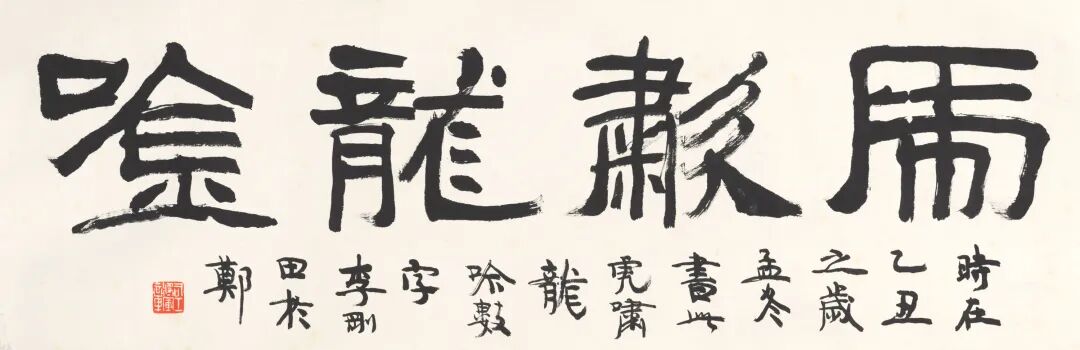 虎歗龍唫
時在
乙丑
之歲
孟冬
書此
虎嘯
龍
吟數
字
李剛
田於
鄭